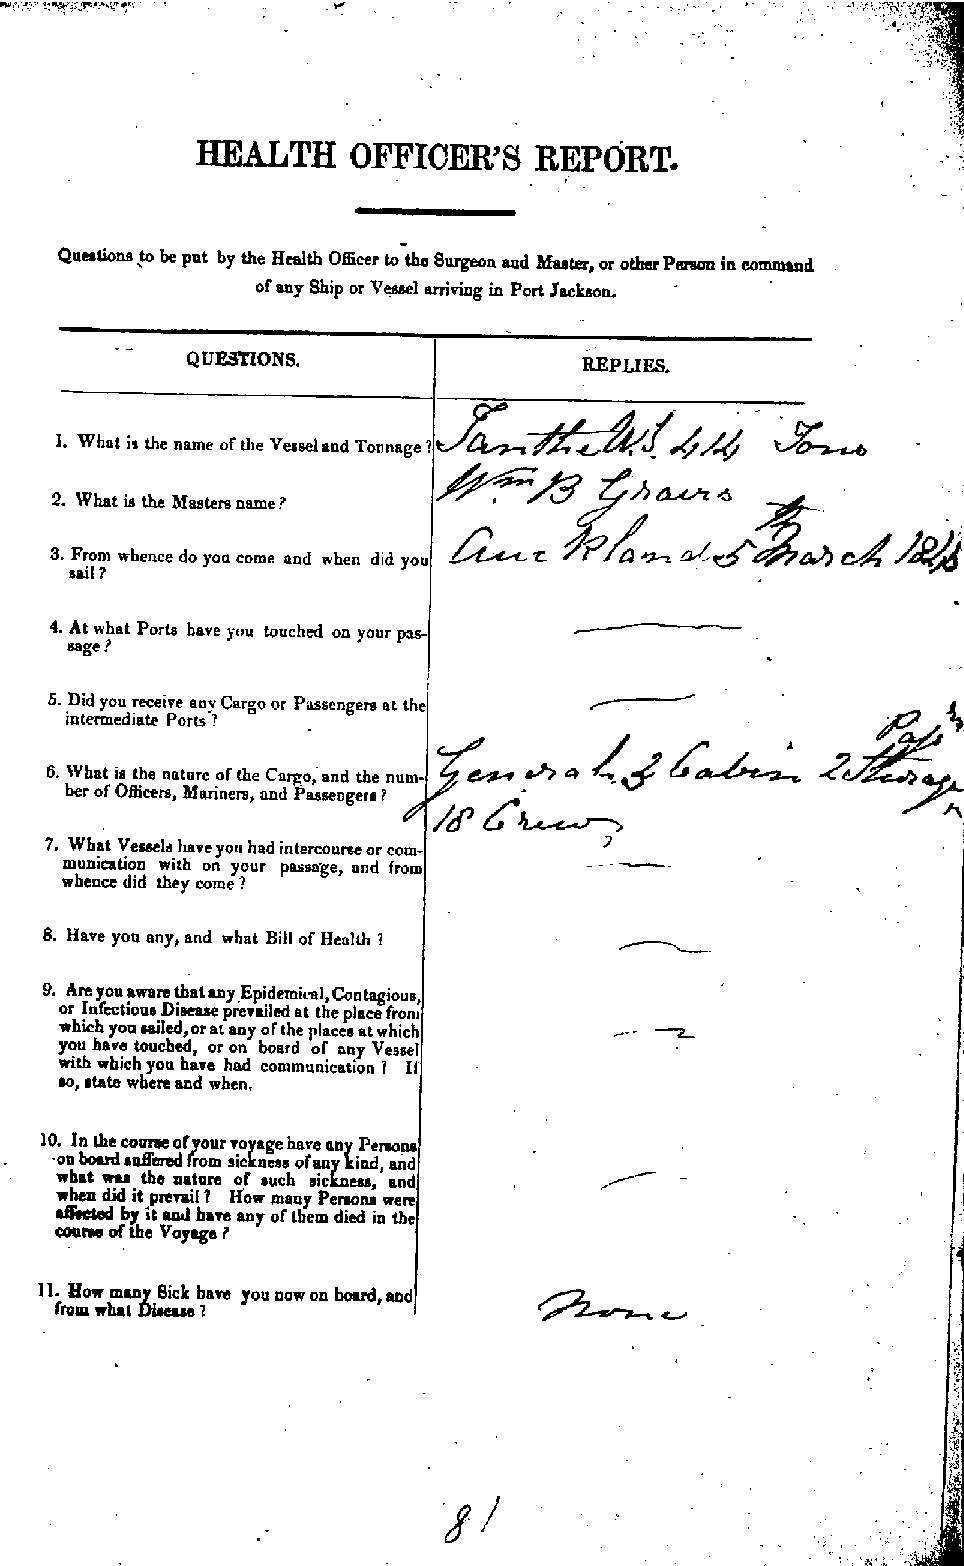 HEALTH OFFICER'S REPORT.
Questions to be put by the Health Officer to the Surgeon and Master, or other Person in command
of any Ship or Vessel arriving in Port Jackson.
QUESTIONS.
REPLIES.
1. What is the name of the Vessel and Tonnage?
44 Tons
2. What is the Masters name?
Wm B
3. From whence do you come and when did you
sail?
Auckland 5th March 184
4. At what Ports have you touched on your pas-
sage?
5. Did you receive any Cargo or Passengers at the
intermediate Ports?
6. What is the nature of the Cargo, and the num-
ber of Officers, Mariners, and Passengers?
General 3 Cabin 2 Steerage
18 Crew
7. What Vessels have you had intercourse or com-
munication with on your passage, and from
whence did they come?
8. Have you any, and what Bill of Health?
9. Are you aware that any Epidemical, Contagious,
or Infectious Disease prevailed at the place from
which you sailed, or at any of the places at which
you have touched, or on board of any Vessel
with which you have had communication? If
so, state where and when.
10. In the course of your voyage have any Persons
on board suffered from sickness of any kind, and
what was the nature of such sickness, and
when did it prevail? How many Persons were
affected by it and have any of them died in the
course of the Voyage?
11. How many Sick have you now on board, and
from what Disease?
None
81